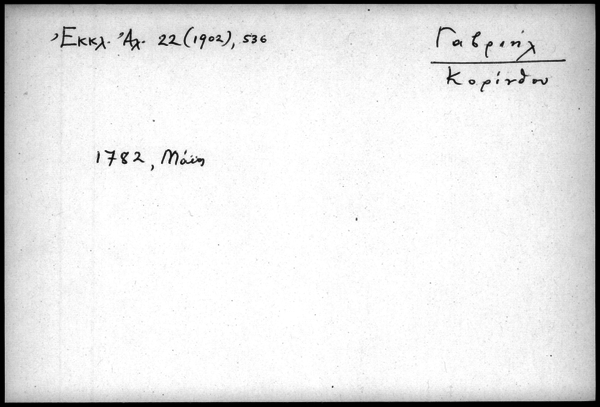 Ἐκκλ. Ἀλ. 22 (1902), 536
Γαβριήλ
Κορίνθου
1782, Μάϊος